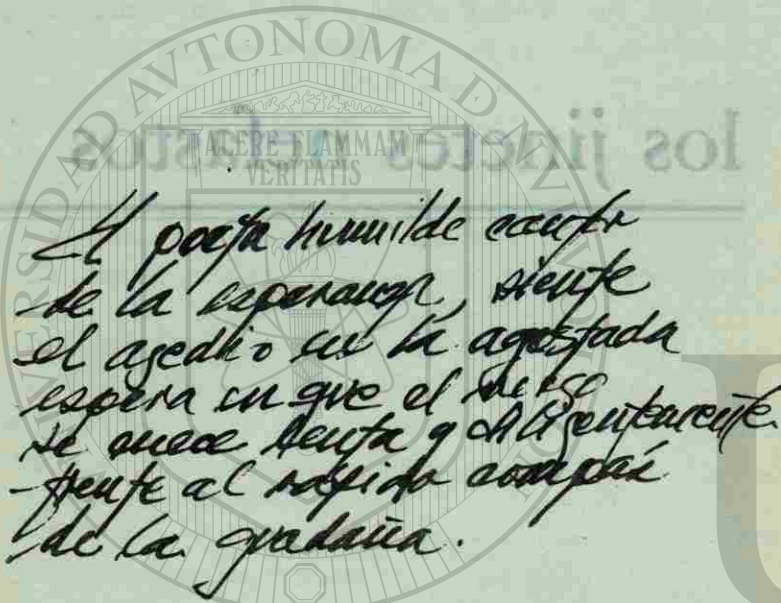 UNIVERSIDAD AUTONOMA DE NUEVO
ALERE FLAMMAM
VERITATIS
los jinetes
El poeta humilde cantor
de la esperanza, siente
el asedio en la agostada
espera en que el
se mece lenta y
frente al rápido compás
de la guadaña.